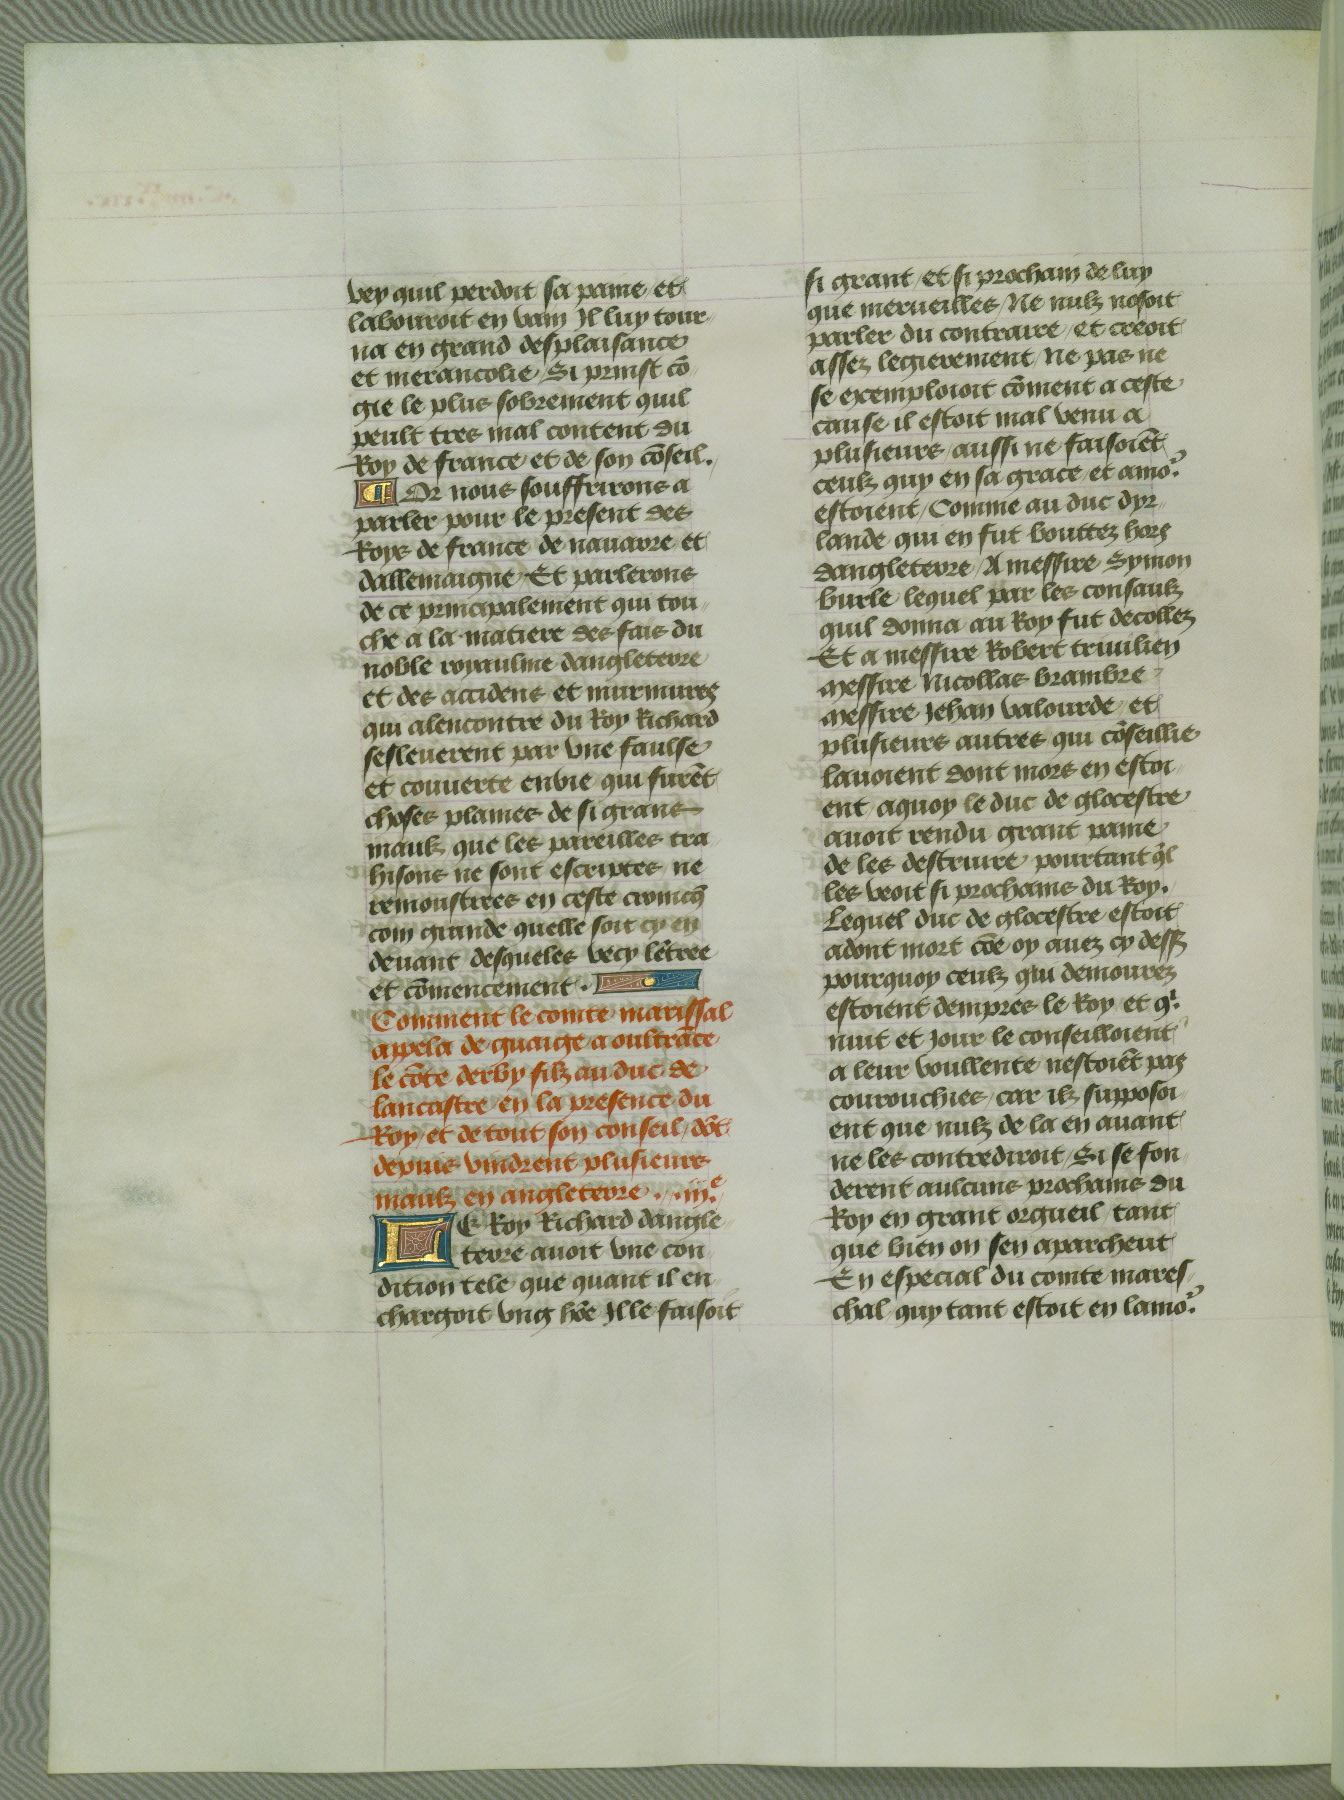 vey quil perdoit sa paine et
labouroit en vain Il luy tour
na en grand desplaisance
et merancolie / Si prinst cō
gie le plus sobrement quil
peult tres mal content du
Roy de france et de son cōseil.
¶ Or nous souffrirons a
parler pour le present des
Roys de france de nauarre et
dallemaigne / Et parlerons
de ce principalement qui tou
che a la matiere des fais du
noble royaulme dangleterre
et des accidens et murmures
qui alencontre du Roy Richard
sesleuerent par vne faulse
et couuerte enuie qui furēt
choses plaines de si grans
maulz que les pareilles tra
hisons ne sont escriptes ne
remonstrees en ceste cronicq̄
com grande quelle soit cy en
deuant desqueles vecy lētree
et cōmencement .
Comment le comte marissal
apela de guaige a oultrāce
le cōte derby filz au duc de
lancastre en la presence du
Roy et de tout son conseil / dōt
depuis vindrent plusieurs
maulz en angleterre . .iiiᵉ.
LE Roy Richard dangle
terre auoit vne con
dition tele que quant il en
chargoit vng hōe Il le faisoit
si grant / et si prochain de luy
que merueilles / Ne nulz nosoit
parler du contraire / et creoit
assez legierement / Ne pas ne
se exemploioit cōment a ceste
cause il estoit mal venu a
plusieurs / aussi ne faisoiēt
ceulz quy en sa grace et amoʳ
estoient / Comme au duc dyr
lande qui en fut bouttez hors
dangleterre / A messire Symon
burle lequel par les consaulz
quil donna au Roy fut decollez
Et a messire Robert triuilien
messire Nicollas brambre
messire Jehan valourde / et
plusieurs autres qui cōseillie
lauoient dont mors en estoi
ent / aquoy le duc de glocestre
auoit rendu grant paine
de les destruire / pourtant q̄l
les veoit si prochains du Roy.
Lequel duc de glocestre estoit
adont mort cōe oy auez cy dess̄
pourquoy ceulz qui demourez
estoient dempres le Roy et qⁱ
nuit et jour le conseilloient
a leur voullente nestoiēt pas
courouchies / car ilz supposoi
ent que nulz de la en auant
ne les contrediroit / Si se fon
derent aulcuns prochains du
Roy en grant orgueil / tant
que bien on sen aparcheut
En especial du comte mares
chal / quy tant estoit en lamoʳ